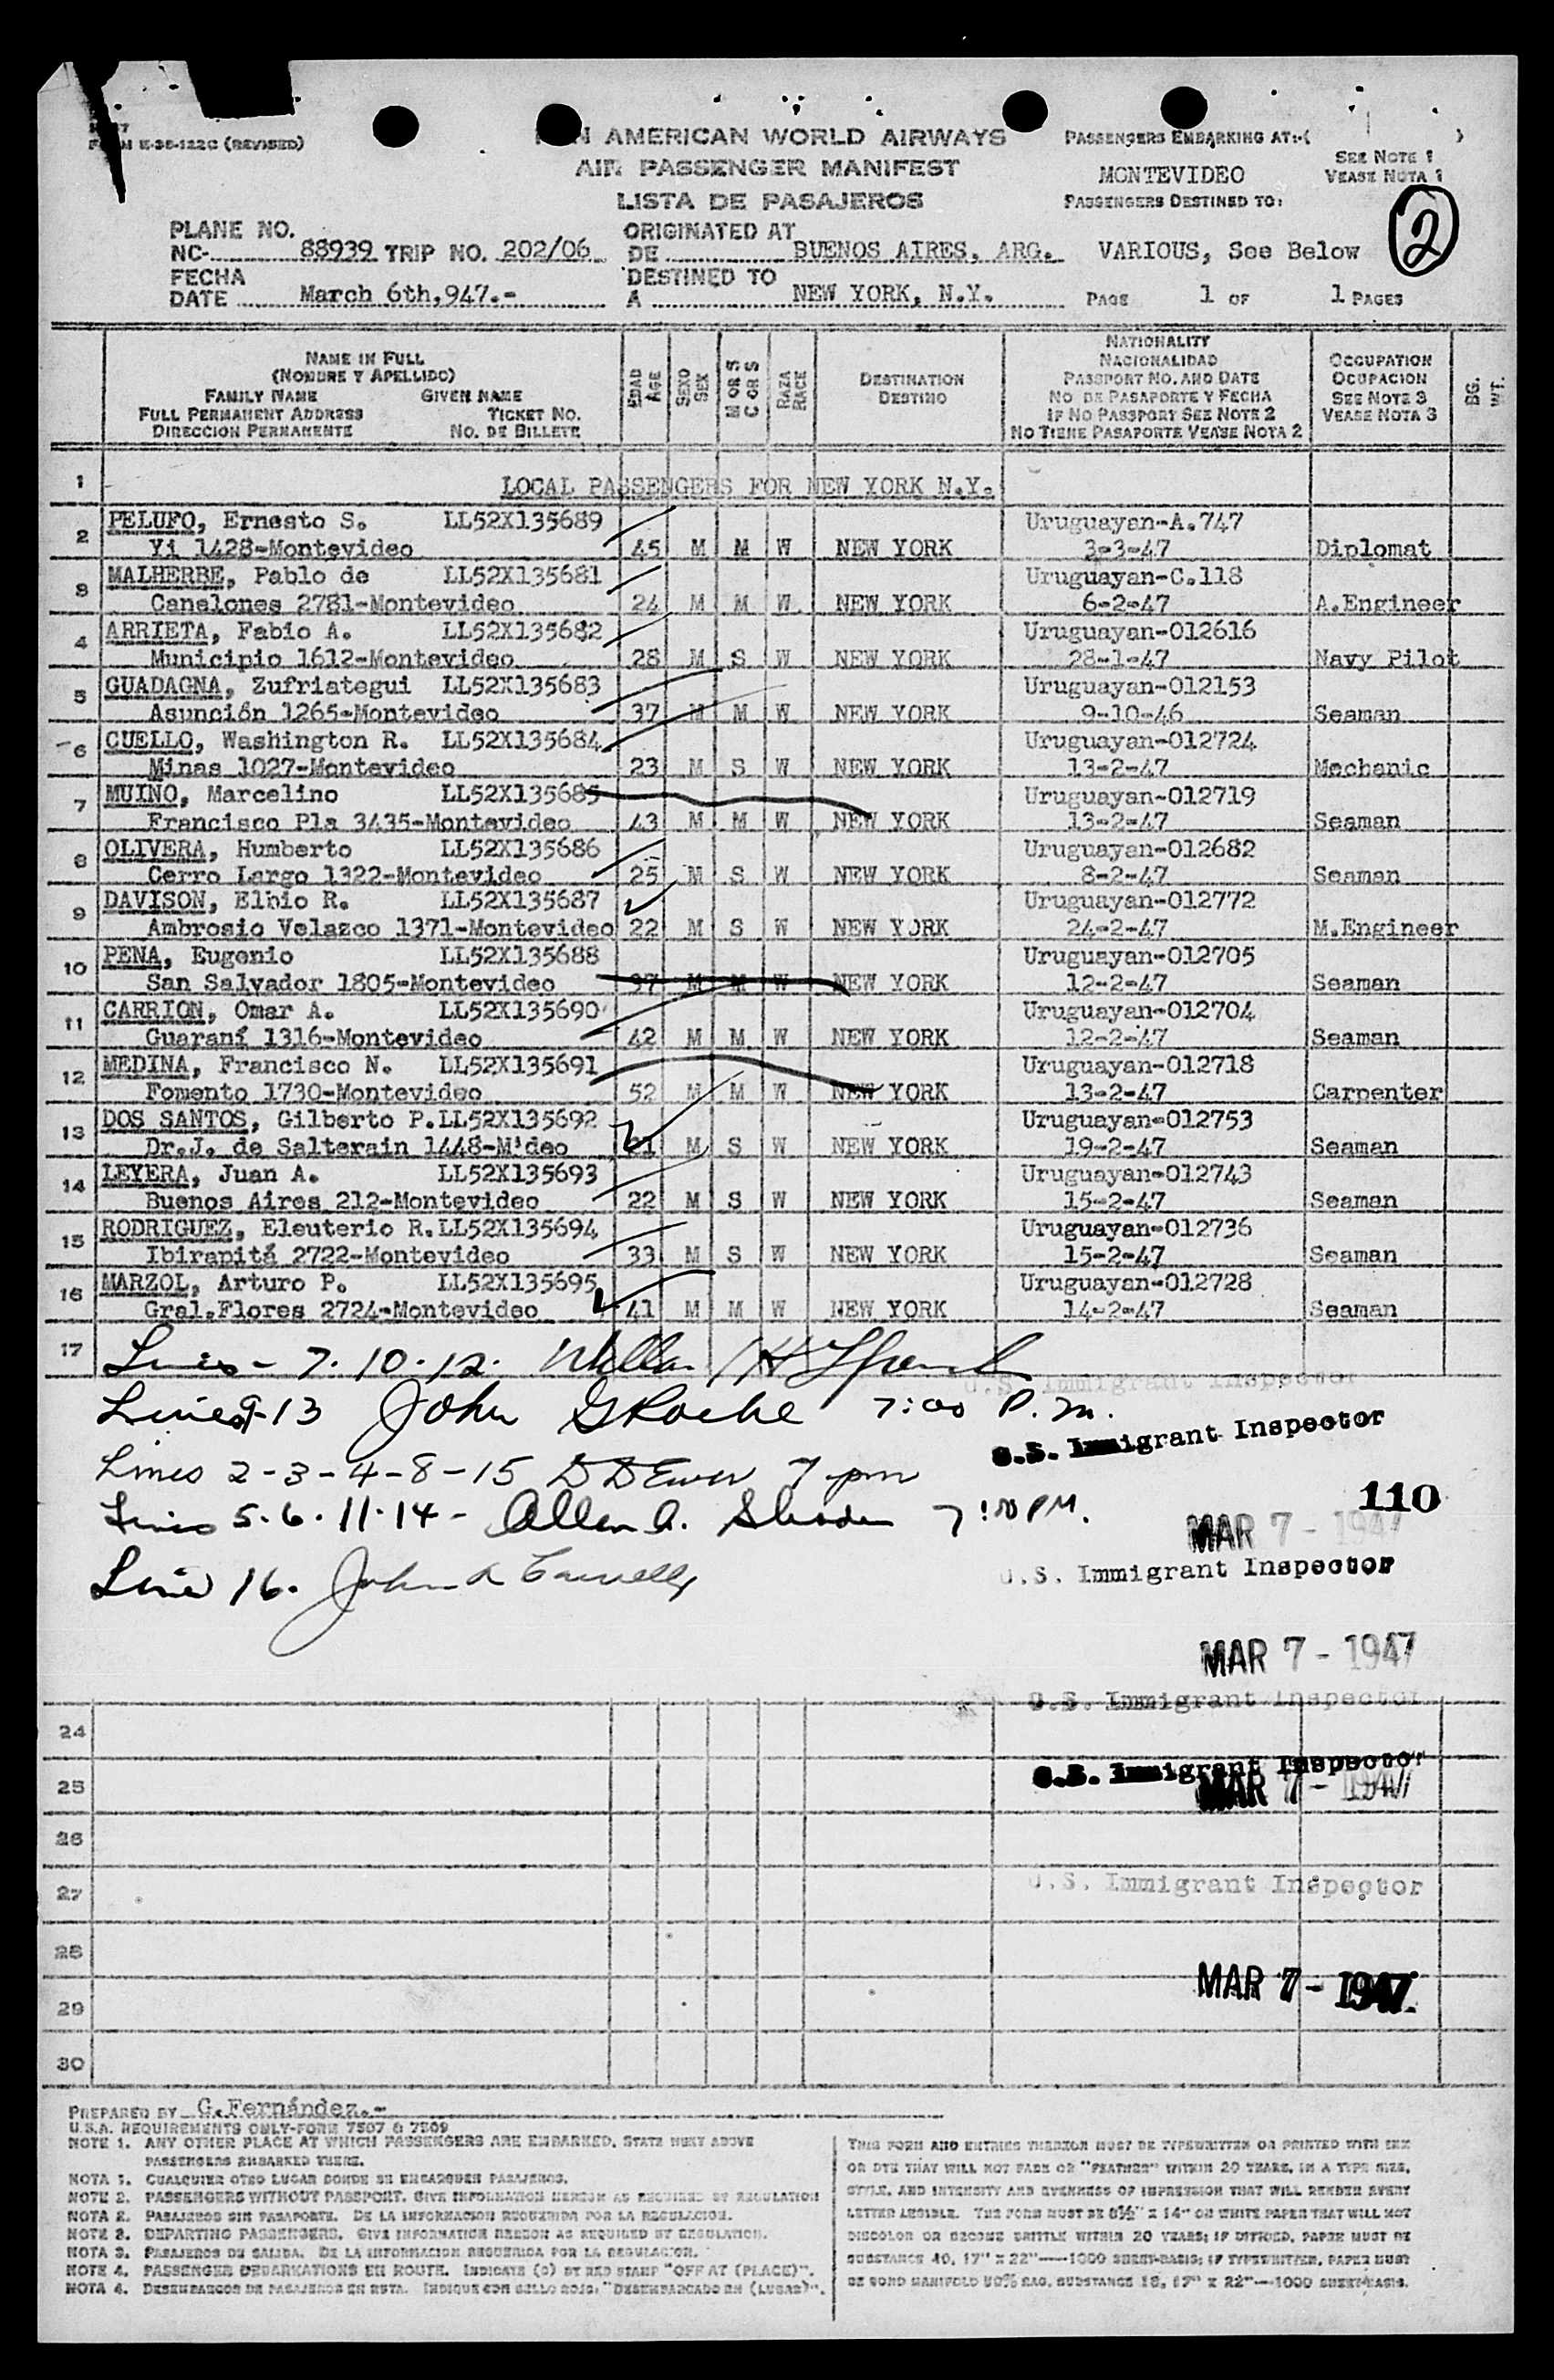 FORM E-36-122C (REVISED)
AMERICAN WORLD AIRWAYS
AIR PASSENGER MANIFEST
LISTA DE PASAJEROS
PASSENGERS EMBARKING AT:-( )
SEE NOTE 1
MONTEVIDEO VEASE NOTA 1
PASSENGERS DESTINED TO:
2
PLANE NO. ORIGINATED AT
NC- 88939 TRIP NO. 202/06 DE BUENOS AIRES, ARG. VARIOUS, See Below
FECHA DESTINED TO
DATE March 6th,947.- A NEW YORK, N.Y. PAGE 1 OF 1 PAGES
NAME IN FULL
(NOMBRE Y APELLIDO)
FAMILY NAME GIVEN NAME
FULL PERMANENT ADDRESS TICKET NO.
DIRECCION PERMANENTE NO. DE BILLETE
EDAD AGE
SEXO SEX
M OR S C OR S
RAZA RACE
DESTINATION
DESTINO
NATIONALITY
NACIONALIDAD
PASSPORT NO. AND DATE
NO DE PASAPORTE Y FECHA
IF NO PASSPORT SEE NOTE 2
NO TIENE PASAPORTE VEASE NOTA 2
OCCUPATION
OCUPACION
SEE NOTE 3
VEASE NOTA 3
BG. WT.
1 LOCAL PASSENGERS FOR NEW YORK N.Y.
2 PELUFO, Ernesto S. LL52X135689 Uruguayan-A.747
Yi 1428-Montevideo 45 M M W NEW YORK 3-3-47 Diplomat
3 MALHERBE, Pablo de LL52X135681 Uruguayan-C.118
Canalones 2781-Montevideo 24 M M W NEW YORK 6-2-47 A.Engineer
4 ARRIETA, Fabio A. LL52X135682 Uruguayan-012616
Municipio 1612-Montevideo 28 M S W NEW YORK 28-1-47 Navy Pilot
5 GUADAGNA, Zufriategui LL52X135683 Uruguayan-012153
Asunción 1265-Montevideo 37 M M W NEW YORK 9-10-46 Seaman
6 CUELLO, Washington R. LL52X135684 Uruguayan-012724
Minas 1027-Montevideo 23 M S W NEW YORK 13-2-47 Mechanic
7 MUINO, Marcelino LL52X135685 Uruguayan-012719
Francisco Pla 3435-Montevideo 43 M M W NEW YORK 13-2-47 Seaman
8 OLIVERA, Humberto LL52X135686 Uruguayan-012682
Cerro Largo 1322-Montevideo 25 M S W NEW YORK 8-2-47 Seaman
9 DAVISON, Elbio R. LL52X135687 Uruguayan-012772
Ambrosio Velazco 1371-Montevideo 22 M S W NEW YORK 24-2-47 M.Engineer
10 PENA, Eugenio LL52X135688 Uruguayan-012705
San Salvador 1805-Montevideo 37 M M W NEW YORK 12-2-47 Seaman
11 CARRION, Omar A. LL52X135690 Uruguayan-012704
Guaraní 1316-Montevideo 42 M M W NEW YORK 12-2-47 Seaman
12 MEDINA, Francisco N. LL52X135691 Uruguayan-012718
Fomento 1730-Montevideo 52 M M W NEW YORK 13-2-47 Carpenter
13 DOS SANTOS, Gilberto P. LL52X135692 Uruguayan-012753
Dr.J. de Salterain 1448-M'deo 21 M S W NEW YORK 19-2-47 Seaman
14 LEYERA, Juan A. LL52X135693 Uruguayan-012743
Buenos Aires 212-Montevideo 22 M S W NEW YORK 15-2-47 Seaman
15 RODRIGUEZ, Eleuterio R. LL52X135694 Uruguayan-012736
Ibirapitá 2722-Montevideo 33 M S W NEW YORK 15-2-47 Seaman
16 MARZOL, Arturo P. LL52X135695 Uruguayan-012728
Gral.Flores 2724-Montevideo 41 M M W NEW YORK 14-2-47 Seaman
17 Lines - 7.10.12.
U.S. Immigrant Inspector
Lines 9-13 John G Roche 7:00 P.m.
U.S. Immigrant Inspector
Lines 2-3-4-8-15 7 pm
110
Lines 5.6.11.14- Allen A. 7:00 PM.
MAR 7 - 1947
U.S. Immigrant Inspector
Line 16. John
MAR 7 - 1947
U.S. Immigrant Inspector
24
U.S. Immigrant Inspector
25 MAR 7 - 1947
26
27 U.S. Immigrant Inspector
28
MAR 7 - 1947
29
30
PREPARED BY G.Fernández.-
U.S.A. REQUIREMENTS ONLY-FORM 7507 & 7509
NOTE 1. ANY OTHER PLACE AT WHICH PASSENGERS ARE EMBARKED, STATE MUST ABOVE
PASSENGERS EMBARKED THERE.
NOTA 1. CUALQUIER OTRO LUGAR DONDE SE EMBARQUEN PASAJEROS.
NOTE 2. PASSENGERS WITHOUT PASSPORT. GIVE INFORMATION HEREON AS REQUIRED BY REGULATION
NOTA 2. PASAJEROS SIN PASAPORTE. DE LA INFORMACION REQUERIDA POR LA REGULACION.
NOTE 3. DEPARTING PASSENGERS. GIVE INFORMATION HEREON AS REQUIRED BY REGULATION.
NOTA 3. PASAJEROS DE SALIDA. DE LA INFORMACION REQUERIDA POR LA REGULACION.
NOTE 4. PASSENGER DEBARKATIONS EN ROUTE. INDICATE (O) BY RED STAMP "OFF AT (PLACE)".
NOTA 4. DESEMBARCOS DE PASAJEROS EN RUTA. INDIQUE CON SELLO ROJO: "DESEMBARCADO EN (LUGAR)".
THIS FORM AND ENTRIES THEREON MUST BE TYPEWRITTEN OR PRINTED WITH INK
OR DYE THAT WILL NOT FADE OR "FEATHER" WITHIN 20 YEARS, IN A TYPE SIZE,
STYLE, AND INTENSITY AND EVENNESS OF IMPRESSION THAT WILL RENDER EVERY
LETTER LEGIBLE. THE FORM MUST BE 8½" X 14" ON WHITE PAPER THAT WILL NOT
DISCOLOR OR BECOME BRITTLE WITHIN 20 YEARS; IF DITTOED, PAPER MUST BE
SUBSTANCE 40, 17" X 22"—1000 SHEET-BASIS; IF TYPEWRITTEN, PAPER MUST
BE BOND MANIFOLD 50% RAG, SUBSTANCE 18, 17" X 22"—1000 SHEET-BASIS.